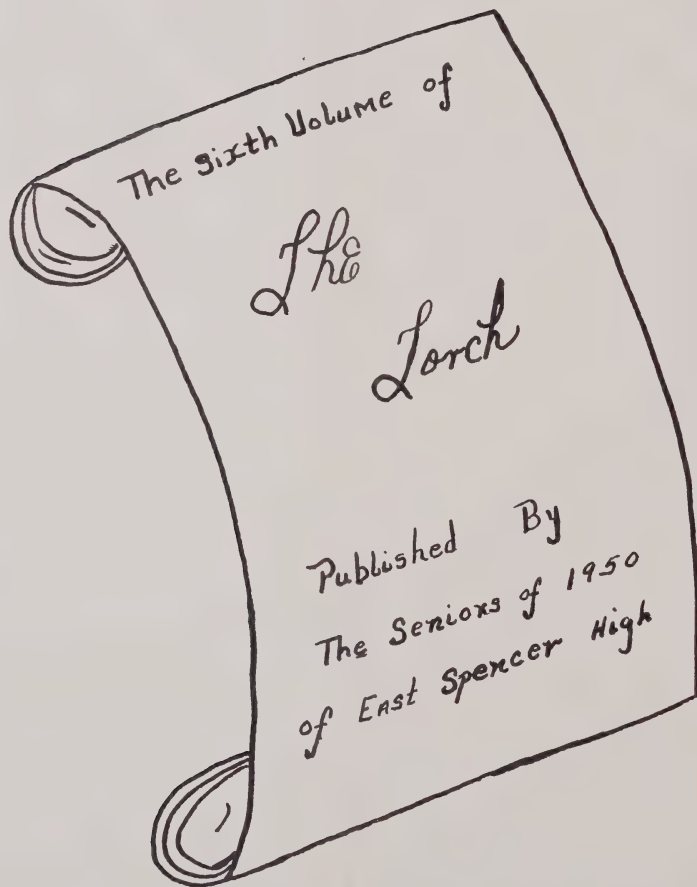 The sixth Volume of
The
Torch
Published By
The Seniors of 1950
of East Spencer High